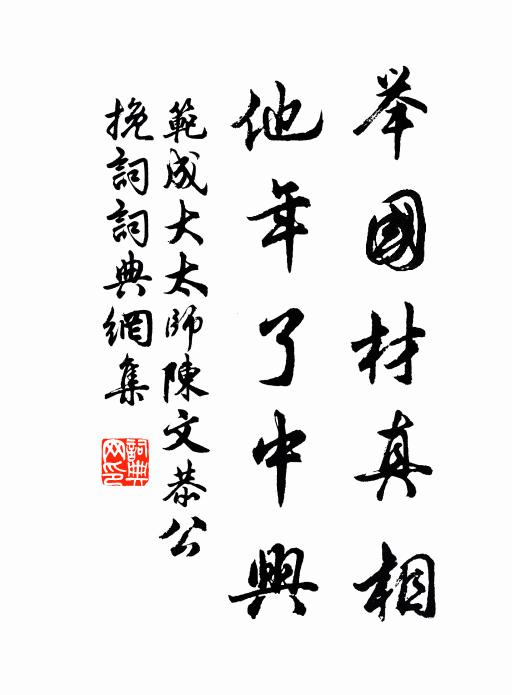 举國材真相
他年了中興
範成大太師陳文恭公
挽詞詞典網集
詞典网印